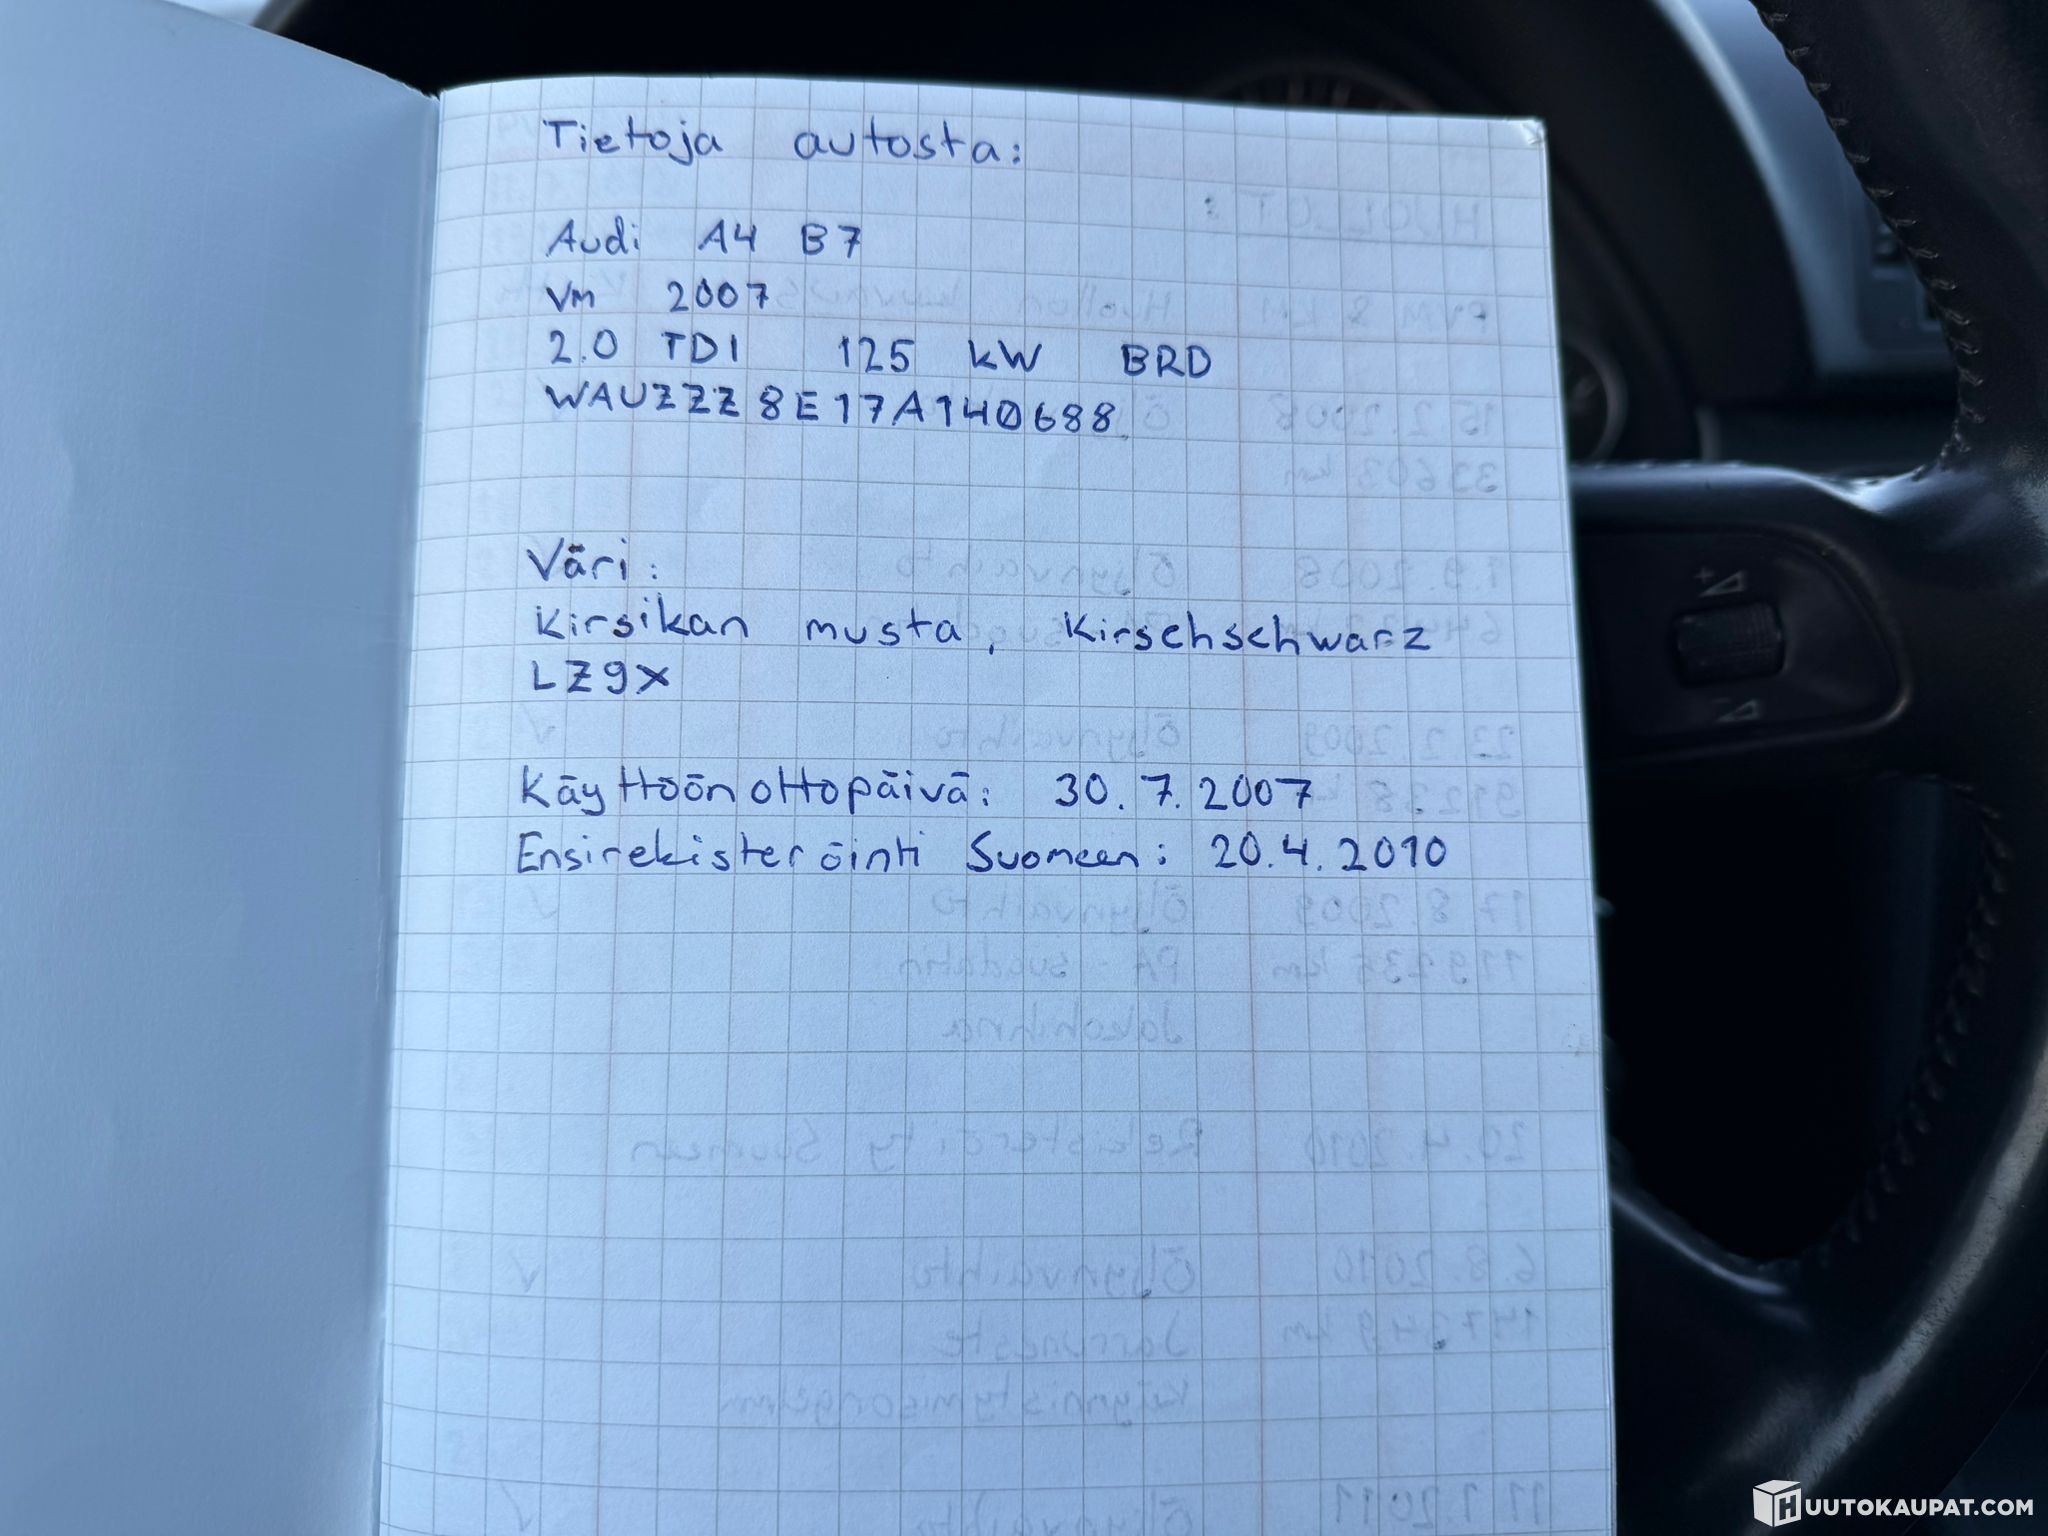 Tietoja autosta:
Audi A4 B7
vm 2007
2.0 TDI 125 kW BRD
WAUZZZ8E17A140688
Väri:
Kirsikan musta, Kirschschwarz
LZ9X
Käyttöönottopäivä: 30.7.2007
Ensirekisteröinti Suomeen: 20.4.2010
HUUTOKAUPAT.COM